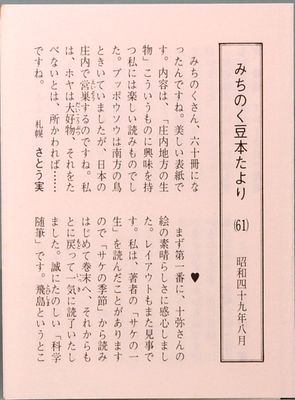 みちのく豆本たより
(61)
昭和四十九年八月
みちのくさん、六十冊にな
ったんですね。美しい表紙で
す。内容は、「庄内地方の生
物」こういうものに興味を持
つ私には楽しい読みものでし
た。ブッポウソウは南方の鳥
ときいていましたが、日本の
庄内で営巣するのですね。私
は、ホヤは大好物、それをた
べないとは、所かわれば……
ですね。
札幌 さとう実
♥
まず第一番に、十弥さんの
絵の素晴らしさに感心しまし
た。レイアウトもまた見事で
す。私は、著者の「サケの一
生」を読んだことがあります
ので「サケの季節」から読み
はじめて巻末へ、それからも
とに戻って一気に読了いたし
ました。誠にたのしい「科学
随筆」です。飛島というとこ